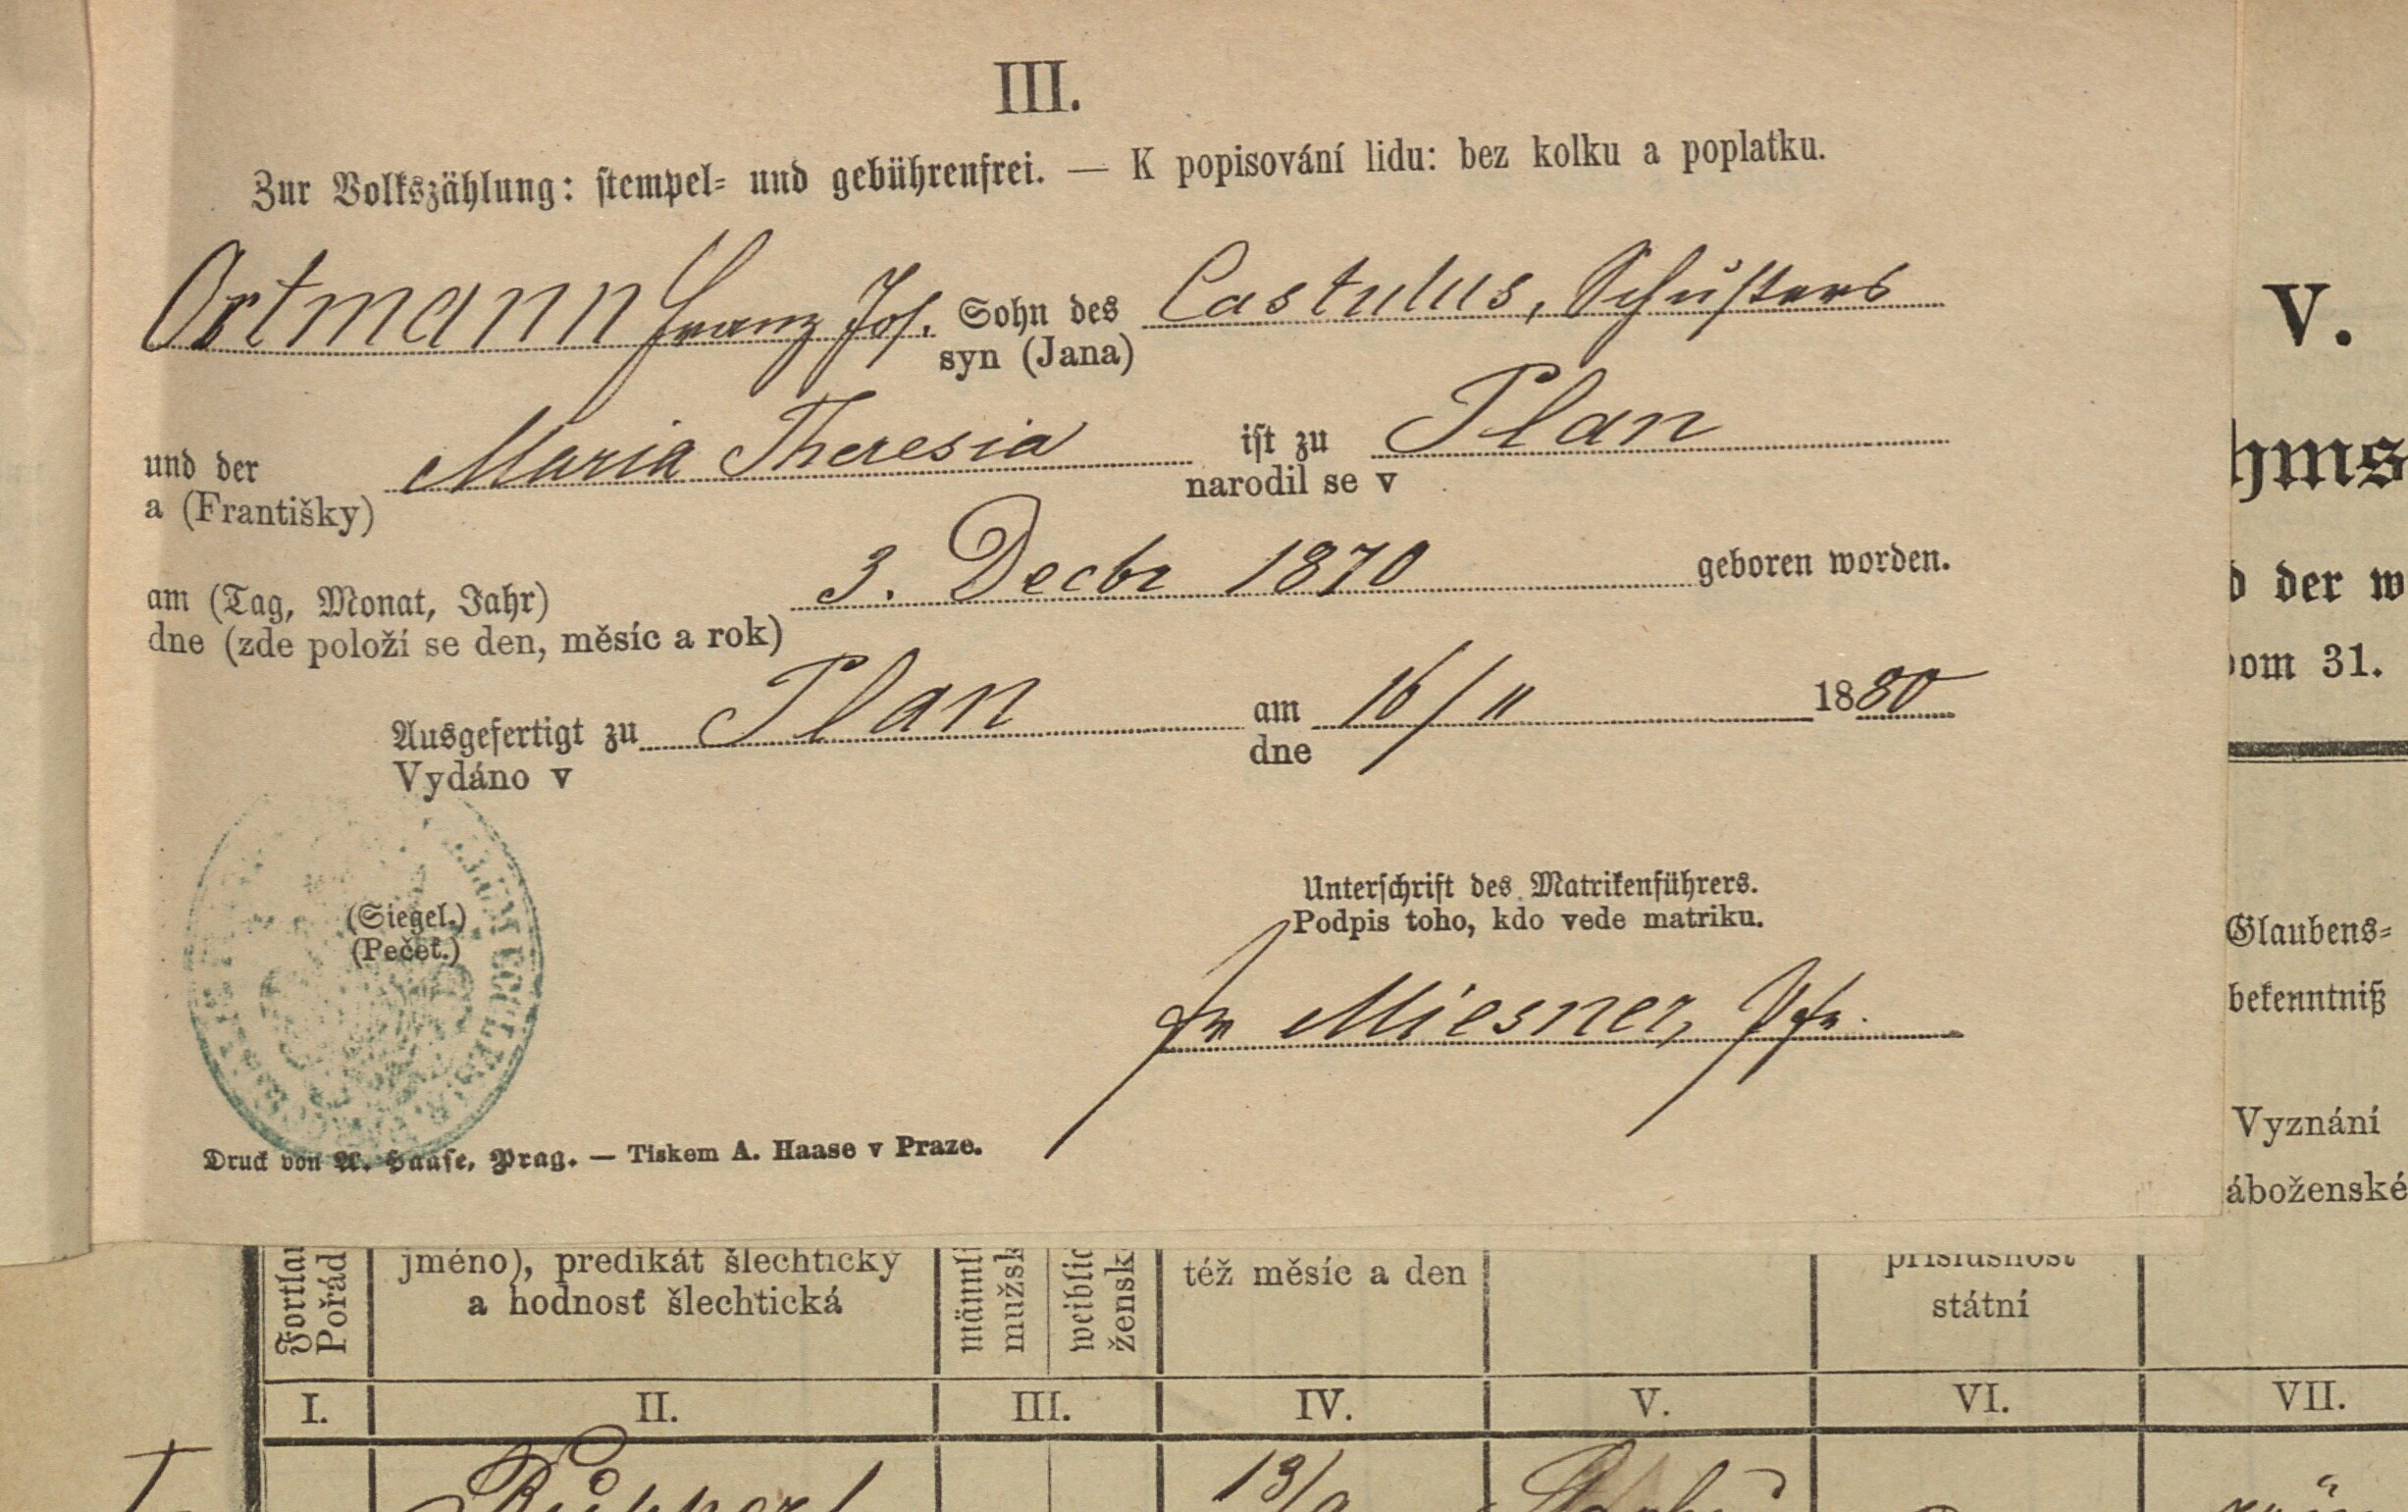 III.
Zur Volkszählung: stempel- und gebührenfrei. — K popisování lidu: bez kolku a poplatku.
Ortmann Franz Jos. Sohn des Castulus, Schusters
syn (Jana)
und der Maria Theresia ist zu Plan
a (Františky) narodil se v
am (Tag, Monat, Jahr) 3. Decbr 1870 geboren worden.
dne (zde položí se den, měsíc a rok)
Ausgefertigt zu Plan am 16/11 1880
Vydáno v dne
(Siegel.)
(Pečeť.)
Unterschrift des Matrikenführers.
Podpis toho, kdo vede matriku.
Fr Miesner, Pfr.
Druck von A. Haase, Prag. — Tiskem A. Haase v Praze.
V.
hms
d der w
vom 31.
Glaubens-
bekenntniß
Vyznání
áboženské
Fortlau
Pořád
jméno), predikát šlechtický
a hodnost šlechtická
männli
mužsk
weiblic
žensk
též měsíc a den
příslušnost
státní
I. II. III. IV. V. VI. VII.
13/9